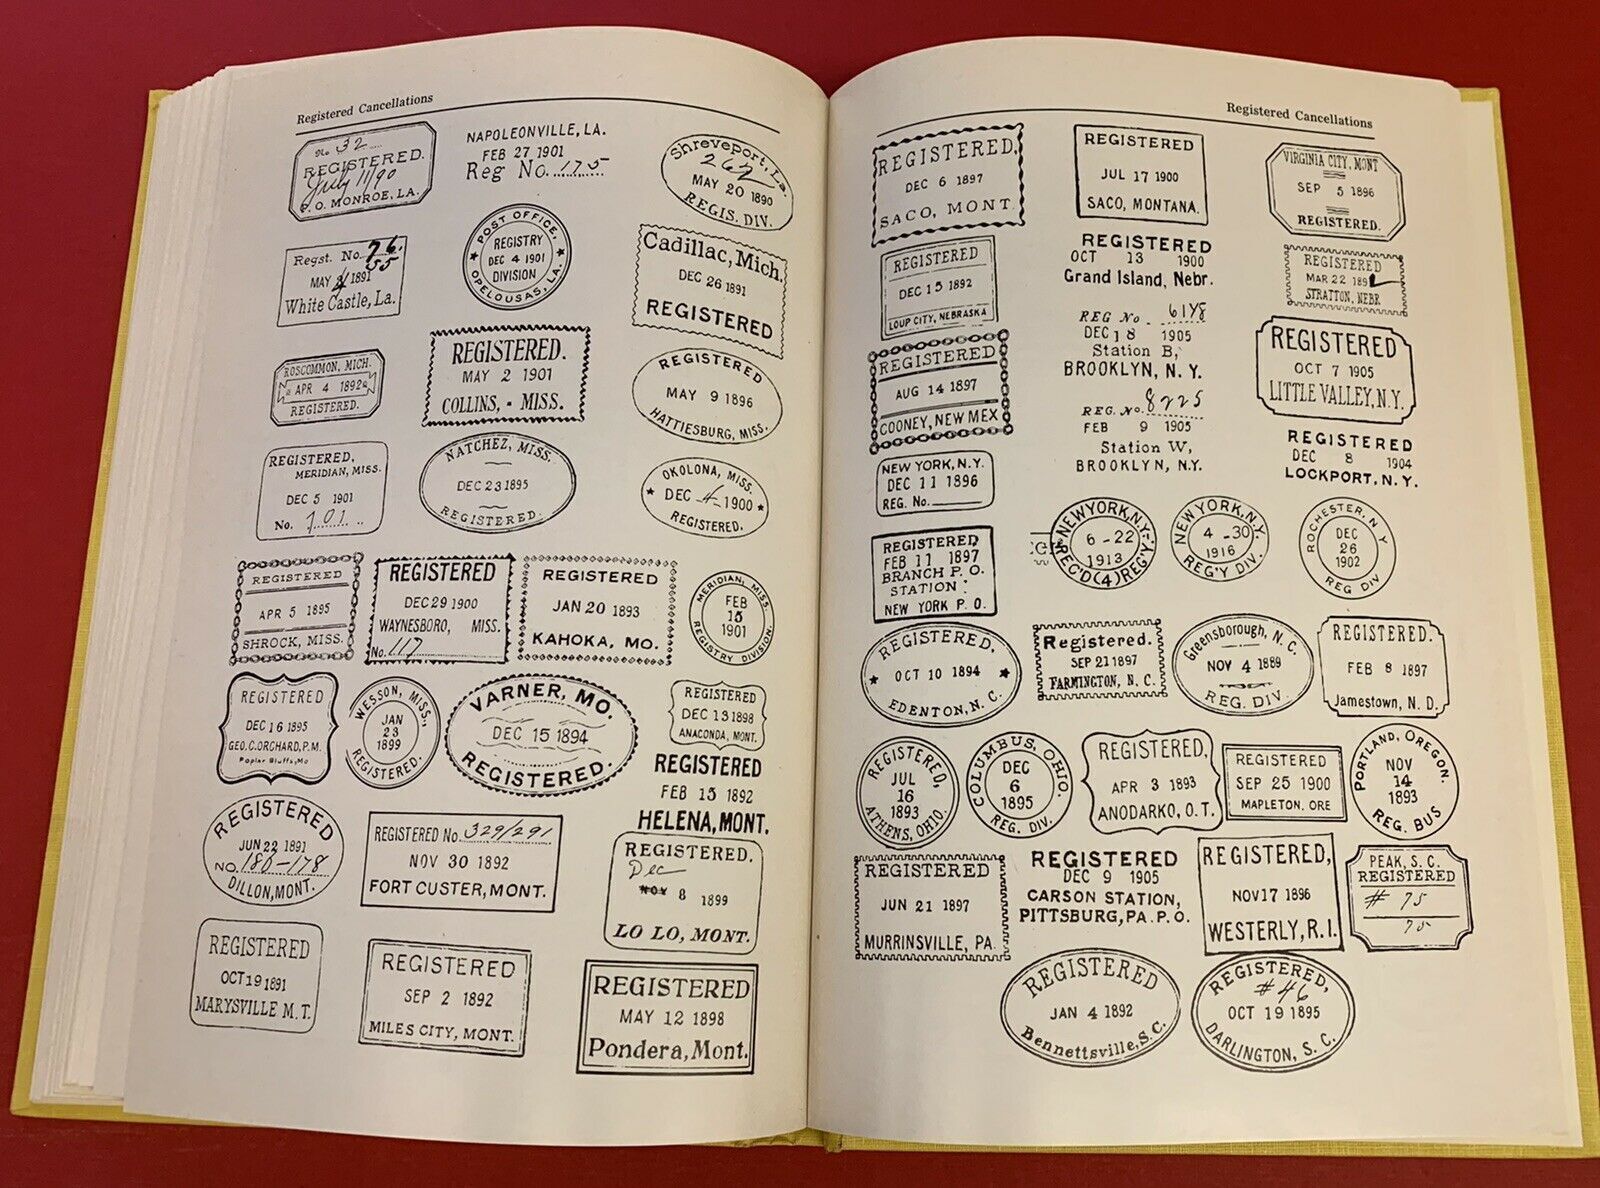 Registered Cancellations
No 32
REGISTERED.
July 11/90
P. O. MONROE, LA.
NAPOLEONVILLE, LA.
FEB 27 1901
Reg No. 175
Shreveport, La.
262
MAY 20 1890
REGIS. DIV.
Regst. No. 76.
55
MAY 1891
White Castle, La.
POST OFFICE,
REGISTRY
DEC 4 1901
DIVISION
OPELOUSAS, LA.
Cadillac, Mich.
DEC 26 1891
REGISTERED
ROSCOMMON, MICH.
APR 4 1892
REGISTERED.
REGISTERED.
MAY 2 1901
COLLINS, - MISS.
REGISTERED
MAY 9 1896
HATTIESBURG, MISS.
REGISTERED,
MERIDIAN, MISS.
DEC 5 1901
No. 101
NATCHEZ, MISS.
DEC 23 1895
REGISTERED.
OKOLONA, MISS.
DEC 4 1900
REGISTERED.
REGISTERED
APR 5 1895
SHROCK, MISS.
REGISTERED
DEC 29 1900
WAYNESBORO, MISS.
No. 117
REGISTERED
JAN 20 1893
KAHOKA, MO.
MERIDIAN, MISS.
FEB
15
1901
REGISTRY DIVISION.
REGISTERED
DEC 16 1895
GEO. C. ORCHARD, P.M.
Poplar Bluffs, Mo
WESSON, MISS.,
JAN
23
1899
REGISTERED.
VARNER, MO.
DEC 15 1894
REGISTERED.
REGISTERED
DEC 13 1898
ANACONDA, MONT.
REGISTERED
FEB 15 1892
HELENA, MONT.
REGISTERED
JUN 22 1891
NO. 180-178
DILLON, MONT.
REGISTERED No. 329/291
NOV 30 1892
FORT CUSTER, MONT.
REGISTERED.
Dec
NOV 8 1899
LO LO, MONT.
REGISTERED
OCT 19 1891
MARYSVILLE M. T.
REGISTERED
SEP 2 1892
MILES CITY, MONT.
REGISTERED
MAY 12 1898
Pondera, Mont.
Registered Cancellations
REGISTERED.
DEC 6 1897
SACO, MONT.
REGISTERED
JUL 17 1900
SACO, MONTANA.
VIRGINIA CITY, MONT
SEP 5 1896
REGISTERED.
REGISTERED
DEC 15 1892
LOUP CITY, NEBRASKA
REGISTERED
OCT 13 1900
Grand Island, Nebr.
REGISTERED
MAR 22 189
STRATTON, NEBR
REGISTERED
AUG 14 1897
COONEY, NEW MEX
REG No. 6148
DEC 18 1905
Station B,
BROOKLYN, N. Y.
REGISTERED
OCT 7 1905
LITTLE VALLEY, N.Y.
REG. No. 8225
FEB 9 1905
Station W,
BROOKLYN, N.Y.
REGISTERED
DEC 8 1904
LOCKPORT, N. Y.
NEW YORK, N.Y.
DEC 11 1896
REG. No.
REGISTERED
FEB 11 1897
BRANCH P. O.
STATION
NEW YORK P. O.
NEW YORK, N.Y.
6-22
1913
REG'D (4) REG'Y.
NEW YORK, N.Y.
4-30
1916
REG'Y DIV.
ROCHESTER, N Y
DEC
26
1902
REG DIV
REGISTERED,
OCT 10 1894
EDENTON, N. C.
Registered.
SEP 21 1897
FARMINGTON, N. C.
Greensborough, N. C.
NOV 4 1889
REG. DIV.
REGISTERED.
FEB 8 1897
Jamestown, N. D.
REGISTERED,
JUL
16
1893
ATHENS, OHIO.
COLUMBUS, OHIO.
DEC
6
1895
REG. DIV.
REGISTERED,
APR 3 1893
ANODARKO, O. T.
REGISTERED
SEP 25 1900
MAPLETON, ORE
PORTLAND, OREGON.
NOV
14
1893
REG. BUS
REGISTERED
JUN 21 1897
MURRINSVILLE, PA.
REGISTERED
DEC 9 1905
CARSON STATION,
PITTSBURG, PA. P. O.
REGISTERED,
NOV 17 1896
WESTERLY, R. I.
PEAK, S. C.
REGISTERED
# 75
75
REGISTERED
JAN 4 1892
Bennettsville, S. C.
REGISTERED,
# 46
OCT 19 1895
DARLINGTON, S. C.